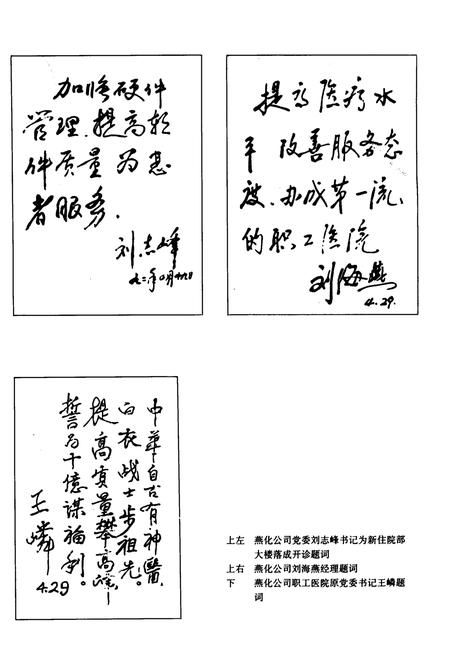 加修硬件
管理.提高软
件质量为患
者服务.
刘志峰
九二年四月廿九日
提高医疗水
平 改善服务态
度、办成第一流
的职工医院
刘海燕
4.29.
中华自古有神醫,
白衣战士步祖先。
提高质量攀高峰,
誓为千億谋福利。
王嶙
4.29
上左 燕化公司党委刘志峰书记为新住院部
大楼落成开诊题词
上右 燕化公司刘海燕经理题词
下 燕化公司职工医院原党委书记王嶙题
词